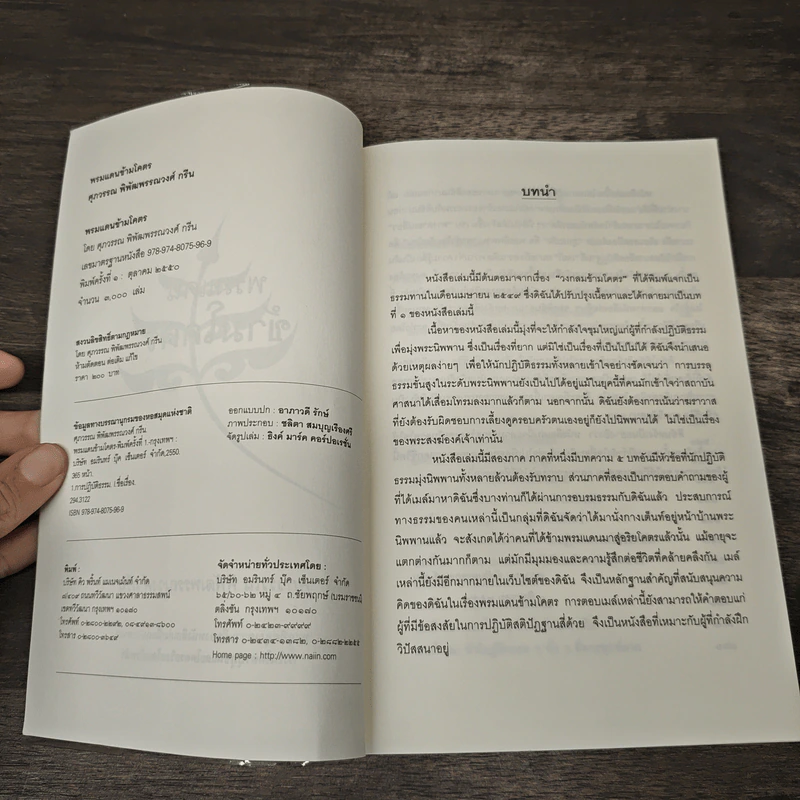 พรมแดนข้ามโคตร
ศุภวรรณ พิพัฒพรรณวงศ์ กรีน
พรมแดนข้ามโคตร
โดย ศุภวรรณ พิพัฒพรรณวงศ์ กรีน
เลขมาตรฐานหนังสือ 978-974-8075-96-9
พิมพ์ครั้งที่ ๑ : ตุลาคม ๒๕๕๐
จำนวน ๓,๐๐๐ เล่ม
สงวนลิขสิทธิ์ตามกฎหมาย
โดย ศุภวรรณ พิพัฒพรรณวงศ์ กรีน
ห้ามตัดตอน ต่อเติม แก้ไข
ราคา ๒๐๐ บาท
ข้อมูลทางบรรณานุกรมของหอสมุดแห่งชาติ
ศุภวรรณ พิพัฒพรรณวงศ์ กรีน.
พรมแดนข้ามโคตร.-พิมพ์ครั้งที่ 1.-กรุงเทพฯ :
บริษัท อมรินทร์ บุ๊ค เซ็นเตอร์ จำกัด,2550.
365 หน้า.
1.การปฏิบัติธรรม. I.ชื่อเรื่อง.
294.3122
ISBN 978-974-8075-96-9
ออกแบบปก : อาภาวดี รักษ์
ภาพประกอบ : ชลิตา สมบุญเรืองศรี
จัดรูปเล่ม : ฮิงค์ มาร์ค คอร์ปอเรชั่น
พิมพ์ :
บริษัท คิว พริ้นท์ แมเนจเม้นท์ จำกัด
เขตทวีวัฒนา กรุงเทพฯ ๑๐๑๗๐
โทรศัพท์ ๐-๒๘๐๐-๒๒๙๒, ๐๘๔-๙๑๓-๘๖๐๐
โทรสาร ๐-๒๘๐๐-๓๖๔๙
จัดจำหน่ายทั่วประเทศโดย :
บริษัท อมรินทร์ บุ๊ค เซ็นเตอร์ จำกัด
๖๕/๖๐-๖๒ หมู่ ๔ ถ.ชัยพฤกษ์ (บรมราชชนนี)
ตลิ่งชัน กรุงเทพฯ ๑๐๑๗๐
โทรศัพท์ ๐-๒๔๒๓-๙๙๙๙
โทรสาร ๐-๒๔๓๔-๑๓๘๒, ๐-๒๘๘๒-๒๒๕๔
Home page : http://www.naiin.com
บทนำ
หนังสือเล่มนี้มีต้นตอมาจากเรื่อง “วงกลมข้ามโคตร” ที่ได้พิมพ์แจกเป็น
ธรรมทานในเดือนเมษายน ๒๕๔๙ ซึ่งดิฉันได้ปรับปรุงเนื้อหาและได้กลายมาเป็นบท
ที่ ๑ ของหนังสือเล่มนี้
เนื้อหาของหนังสือเล่มนี้มุ่งที่จะให้กำลังใจชุมใหญ่แก่ผู้ที่กำลังปฏิบัติธรรม
เพื่อมุ่งพระนิพพาน ซึ่งเป็นเรื่องที่ยาก แต่มิใช่เป็นเรื่องที่เป็นไปไม่ได้ ดิฉันจึงนำเสนอ
ด้วยเหตุผลง่ายๆ เพื่อให้นักปฏิบัติธรรมทั้งหลายเข้าใจอย่างชัดเจนว่า การบรรลุ
ธรรมขั้นสูงในระดับพระนิพพานยังเป็นไปได้อยู่แม้ในยุคนี้ที่คนมักเข้าใจว่าสถาบัน
ศาสนาได้เสื่อมโทรมลงมากแล้วก็ตาม นอกจากนั้น ดิฉันยังต้องการเน้นว่าฆราวาส
ที่ยังต้องรับผิดชอบการเลี้ยงดูครอบครัวตนเองอยู่ก็ยังไปนิพพานได้ ไม่ใช่เป็นเรื่อง
ของพระสงฆ์องค์เจ้าเท่านั้น
หนังสือเล่มนี้มีสองภาค ภาคที่หนึ่งมีบทความ ๕ บทอันมีหัวข้อที่นักปฏิบัติ
ธรรมมุ่งนิพพานทั้งหลายล้วนต้องรับทราบ ส่วนภาคที่สองเป็นการตอบคำถามของผู้
ที่ได้เมล์มาหาดิฉันซึ่งบางท่านก็ได้ผ่านการอบรมธรรมกับดิฉันแล้ว ประสบการณ์
ทางธรรมของคนเหล่านี้เป็นกลุ่มที่ดิฉันจัดว่าได้มานั่งกางเต็นท์อยู่หน้าบ้านพระ
นิพพานแล้ว จะสังเกตได้ว่าคนที่ได้ข้ามพรมแดนมาสู่อริยโคตรแล้วนั้น แม้อายุจะ
แตกต่างกันมากก็ตาม แต่มักมีมุมมองและความรู้สึกต่อชีวิตที่คล้ายคลึงกัน เมล์
เหล่านี้ยังมีอีกมากมายในเว็บไซต์ของดิฉัน จึงเป็นหลักฐานสำคัญที่สนับสนุนความ
คิดของดิฉันในเรื่องพรมแดนข้ามโคตร การตอบเมล์เหล่านี้ยังสามารถให้คำตอบแก่
ผู้ที่มีข้อสงสัยในการปฏิบัติสติปัฏฐานสี่ด้วย จึงเป็นหนังสือที่เหมาะกับผู้ที่กำลังฝึก
วิปัสสนาอยู่